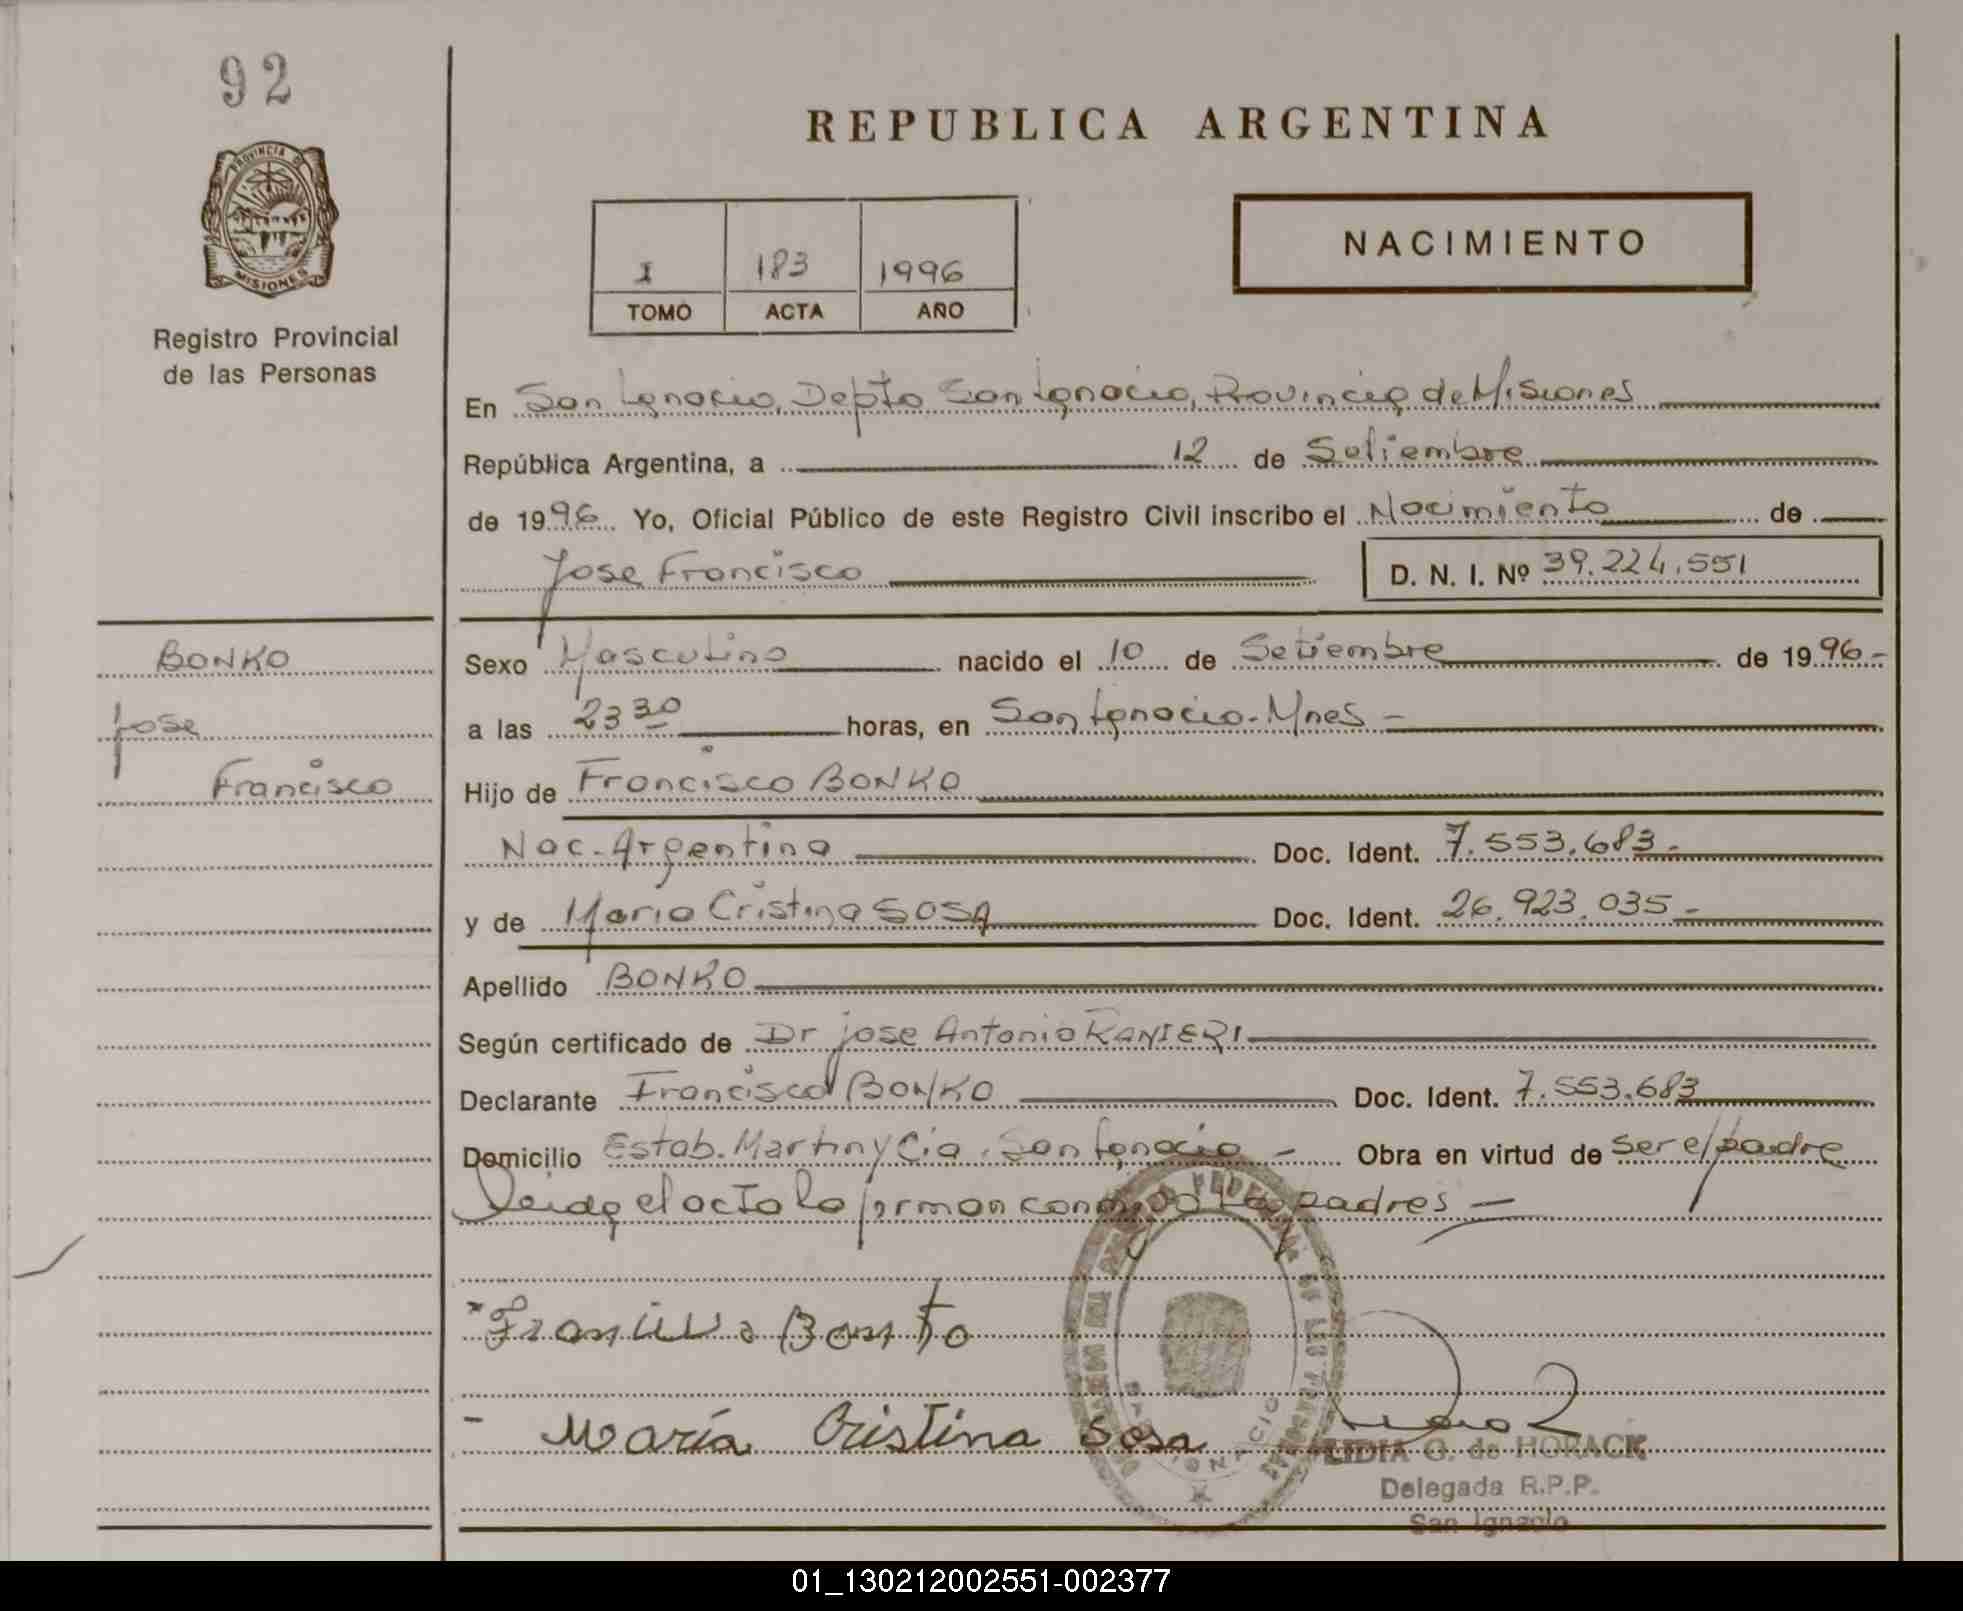 92
PROVINCIA DE
MISIONES
Registro Provincial
de las Personas
REPUBLICA ARGENTINA
I 183 1996
TOMO ACTA AÑO
NACIMIENTO
En San Ignacio, Depto San Ignacio, Provincia de Misiones
República Argentina, a 12 de Setiembre
de 1996 Yo, Oficial Público de este Registro Civil inscribo el Nacimiento de
Jose Francisco D. N. I. Nº 39.224.551
BONKO
Jose
Francisco
Sexo Masculino nacido el 10 de Setiembre de 1996-
a las 23 30 horas, en San Ignacio-Mnes-
Hijo de Francisco BONKO
Nac. Argentina Doc. Ident. 7.553.683.-
y de Maria Cristina SOSA Doc. Ident. 26.923.035-
Apellido BONKO
Según certificado de Dr Jose Antonio RANIERI
Declarante Francisco BONKO Doc. Ident. 7.553.683
Domicilio Estab. Martin y Cia. San Ignacio - Obra en virtud de ser el padre
Leida el acta la firman conmigo los padres-
Francisco Bonko
- María Cristina Sosa
LIDIA G. de HORACK
Delegada R.P.P.
San Ignacio
01_130212002551-002377